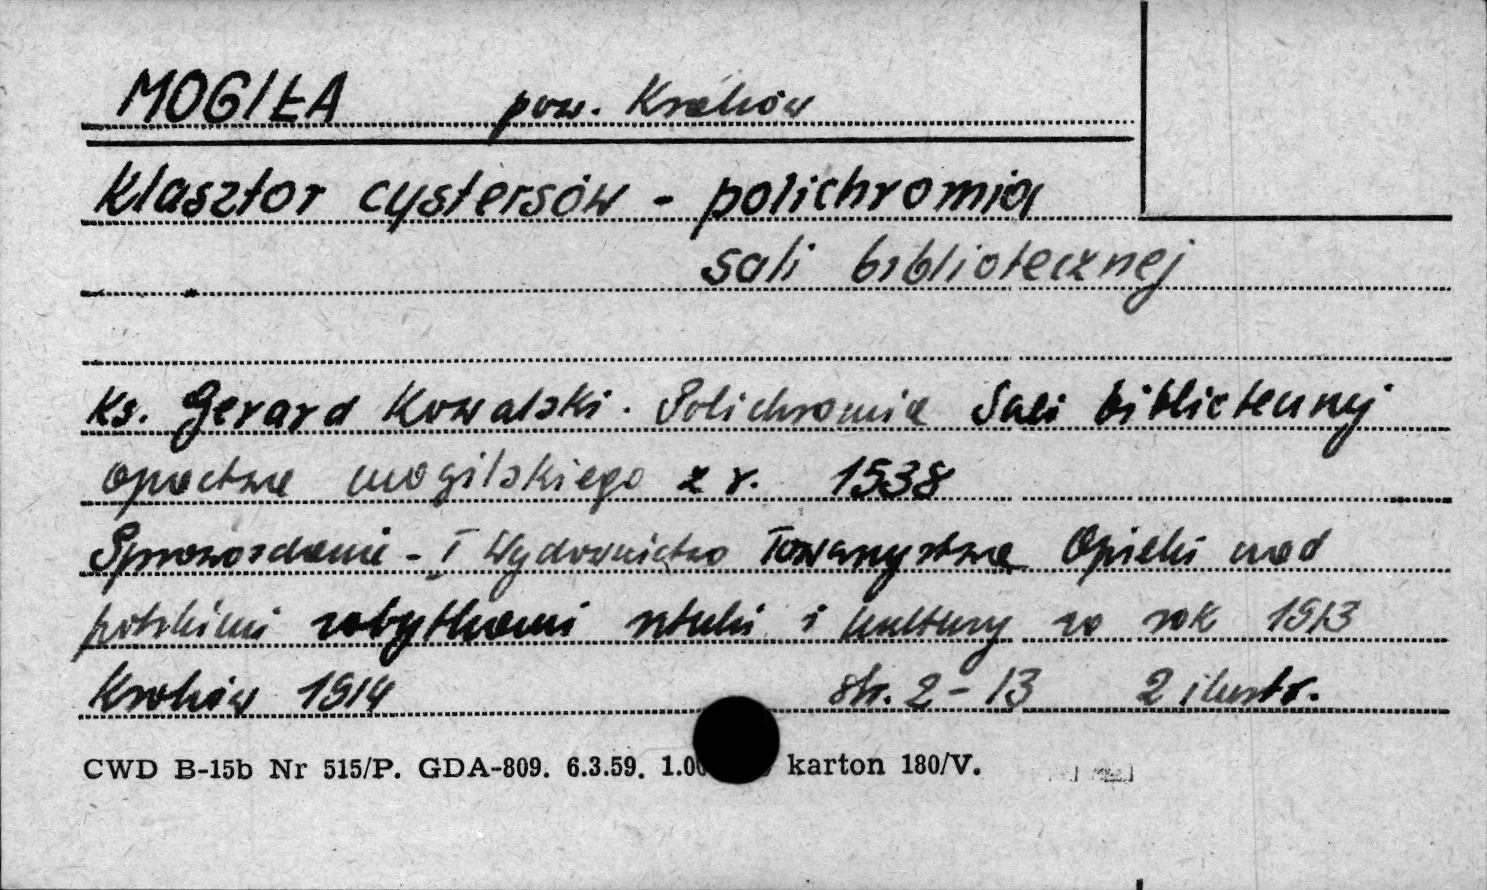 MOGIŁA pow. Kraków
Klasztor cystersów - polichromia
sali bibliotecznej
Ks. Gerard Kowalski. Polichromia Sali bibliotecznej
opactwa mogilskiego z r. 1538
Sprawozdanie - I Wydawnictwo Towarzystwa Opieki nad
polskimi zabytkami sztuki i kultury za rok 1913
Kraków 1914 str. 2-13 2 ilustr.
CWD B-15b Nr 515/P. GDA-809. 6.3.59. karton 180/V.